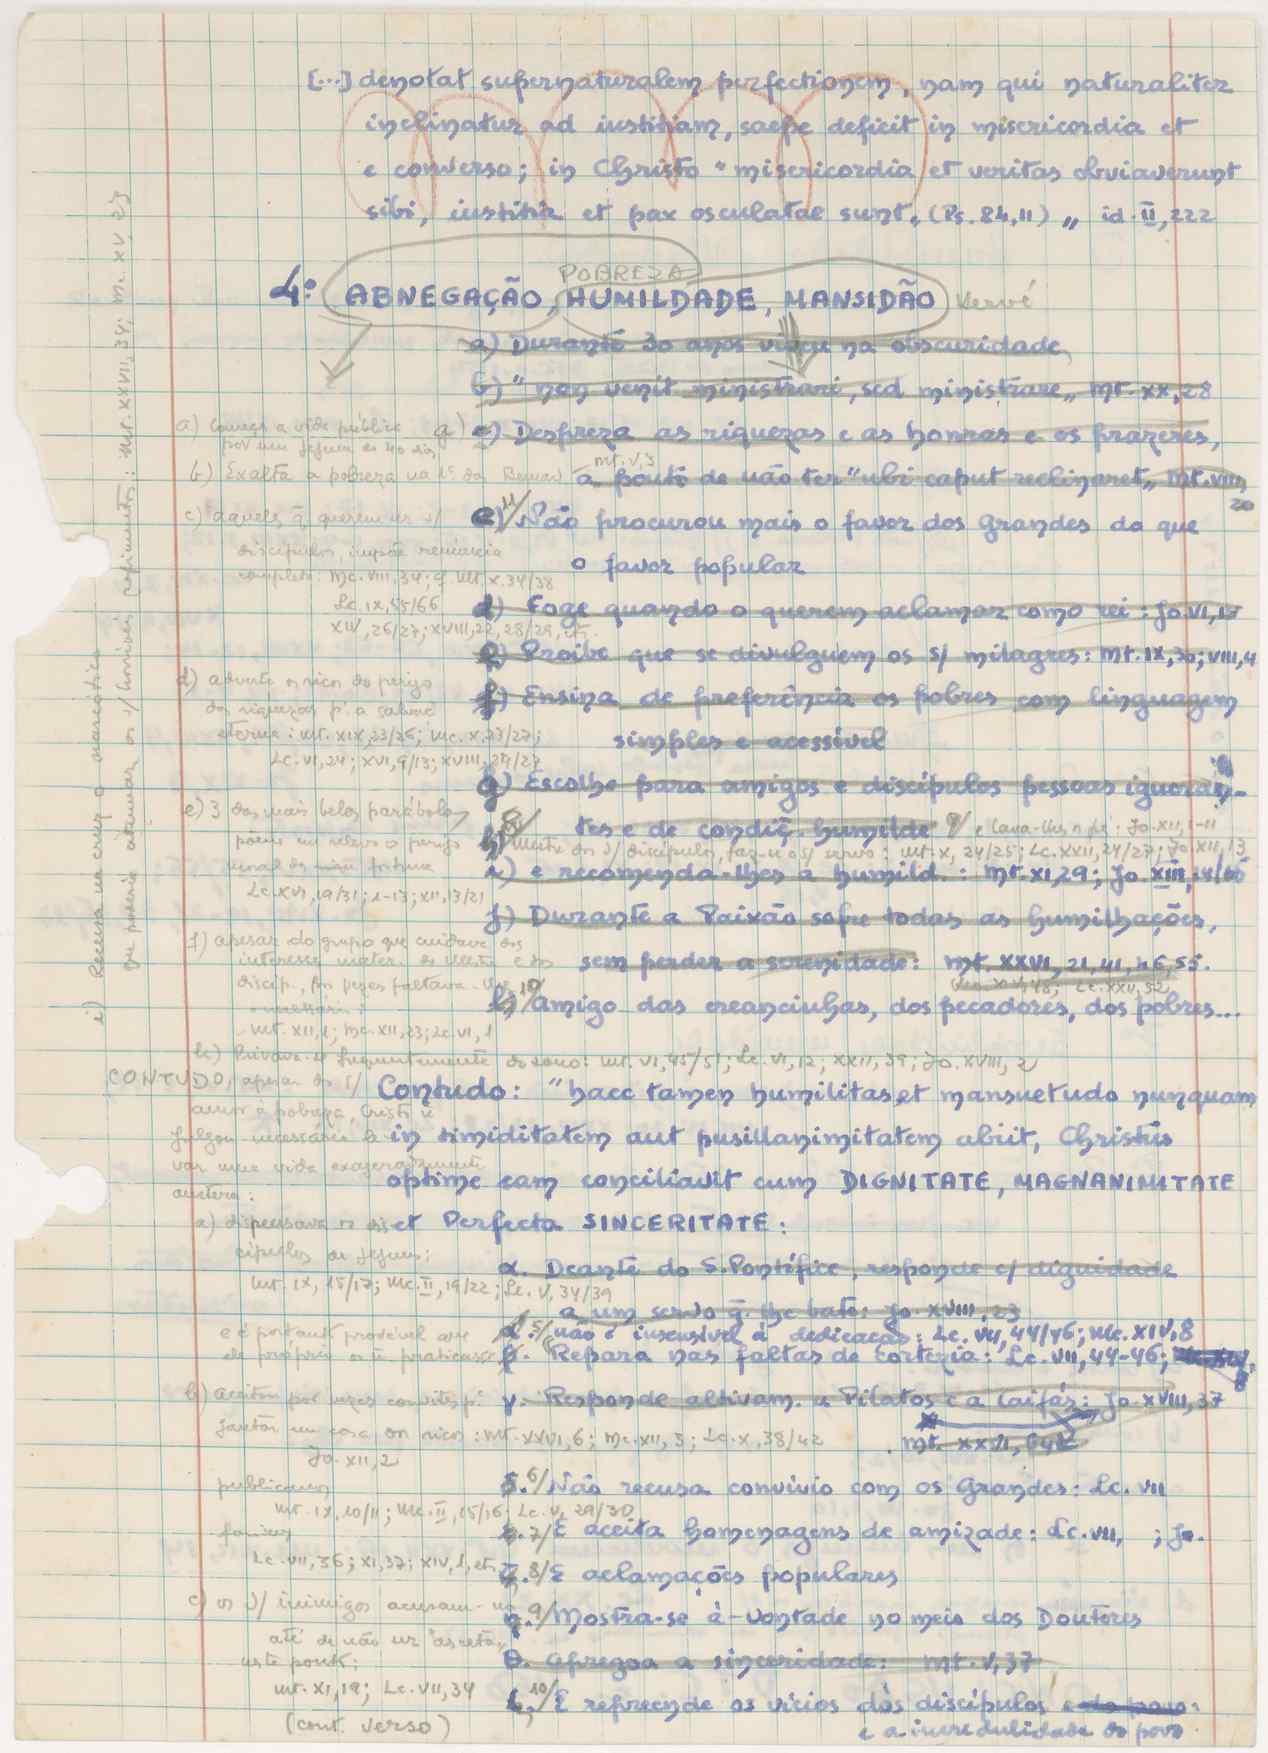 [...] denotat supernaturalem perfectionem, nam qui naturaliter
inclinatur ad iustitiam, saepe deficit in misericordia et
e converso; in Christo "misericordia et veritas obviaverunt
sibi, iustitia et pax osculatae sunt" (Ps. 84,11) „ id. II, 222
POBREZA
4º ABNEGAÇÃO, HUMILDADE, MANSIDÃO
a) Durante 30 anos viveu na obscuridade
b) "non venit ministrari, sed ministrare„ Mt. XX, 28
c) Despreza as riquezas e as honras e os prazeres,
Mt. V, 3
a ponto de não ter "ubi caput reclinaret„ Mt. VIII, 20
11/ Não procurou mais o favor dos Grandes do que
o favor popular
d) Foge quando o querem aclamar como rei: Jo. VI, 15
e) Proibe que se divulguem os s/ milagres: Mt. IX, 30; VIII, 4
f) Ensina de preferência os pobres com linguagem
simples e acessível
g) Escolhe para amigos e discípulos pessoas ignoran-
tes e de condiç. humilde 9/ e lava-lhes os pés: Jo. XII, 1-11
h) 8/ mestre dos s/ discípulos, faz-se o s/ servo: Mt. X, 24/25; Lc. XXII, 24/27; Jo. XII, 13
i) e recomenda-lhes a humild.: Mt. XI, 29; Jo. XIII, 14/
j) Durante a Paixão sofre todas as humilhações,
sem perder a serenidade: Mt. XXVI, 21, 41, 46, 55.
XIV, 48; Lc. XXII, 52
10/ Amigo das creancinhas, dos pecadores, dos pobres...
Contudo: "haec tamen humilitas et mansuetudo nunquam
in timiditatem aut pusillanimitatem abiit, Christus
optime eam conciliavit cum DIGNITATE, MAGNANIMITATE
et Perfecta SINCERITATE:
α. Deante do S. Pontífice, responde c/ dignidade
a um servo q. lhe bate: Jo. XVIII, 23
5/ não é insensível à dedicação: Lc. VII, 44/46; Mc. XIV, 8
β. Repara nas faltas de cortezia: Lc. VII, 44-46;
γ. Responde altivam. a Pilatos e a Caifás: Jo. XVIII, 37
Mt. XXVI, 64
δ. 6/ Não recusa convívio com os Grandes: Lc. VII
7/ E aceita homenagens de amizade: Lc. VII, ; Jo.
8/ E aclamações populares
η. 9/ Mostra-se à-vontade no meio dos Doutores
θ. Apregoa a sinceridade: Mt. V, 37
10/ E repreende os vícios dos discípulos e do povo:
e a incredulidade do povo
a) Começa a vida pública
por um jejum de 40 dias
b) Exalta a pobreza na 1ª das
c) àqueles q. querem ser s/
discípulos, impõe renúncia
completa: Mc. VIII, 34; Mt. X, 34/38
Lc. IX, 55/66
XIV, 26/27; XVIII, 22, 28/29, etc.
d) adverte os ricos do perigo
das riquezas p. a salvação
eterna: Mt. XIX, 23/26; Mc. X, 23/27;
Lc. VI, 24; XVI, 9/13; XVIII, 24/27
e) 3 das mais belas parábolas
põem em relevo o perigo
moral da fortuna
Lc. XVI, 19/31; 1-13; XII, 13/21
f) apesar do grupo que cuidava dos
interesses mater. do Mestre e dos
discíp., por vezes faltava
Mt. XII, 1; Mc. XII, 23; Lc. VI, 1
h) Privava-se frequentemente do sono: Mt. VI, 45/51; Lc. VI, 12; XXII, 39; Jo. XVIII, 2
i) Recusa na cruz o narcótico
que poderia atenuar os s/ horríveis sofrimentos: Mt. XXVII, 34; Mc. XV, 23
CONTUDO, apesar do s/
amor à pobreza, Cristo ñ
julgou necessário le-
var uma vida exageradamente
austera:
a) dispensava os dis-
cípulos de jejuns;
Mt. IX, 15/17; Mc. II, 19/22; Lc. V, 34/39
e é portanto provável que
ele próprio os ñ praticasse
b) Aceitou por vezes convites p.
jantar em casa de ricos: Mt. XXVI, 6; Mc. XII, 3; Lc. X, 38/42
Jo. XII, 2
publicanos
Mt. IX, 10/11; Mc. II, 15/16; Lc. V, 29/30
fariseus
Lc. VII, 36; XI, 37; XIV, 1, etc.
c) os s/ inimigos acusam-no
até de não ser "asceta„
neste ponto:
Mt. XI, 19; Lc. VII, 34
(cont. verso)